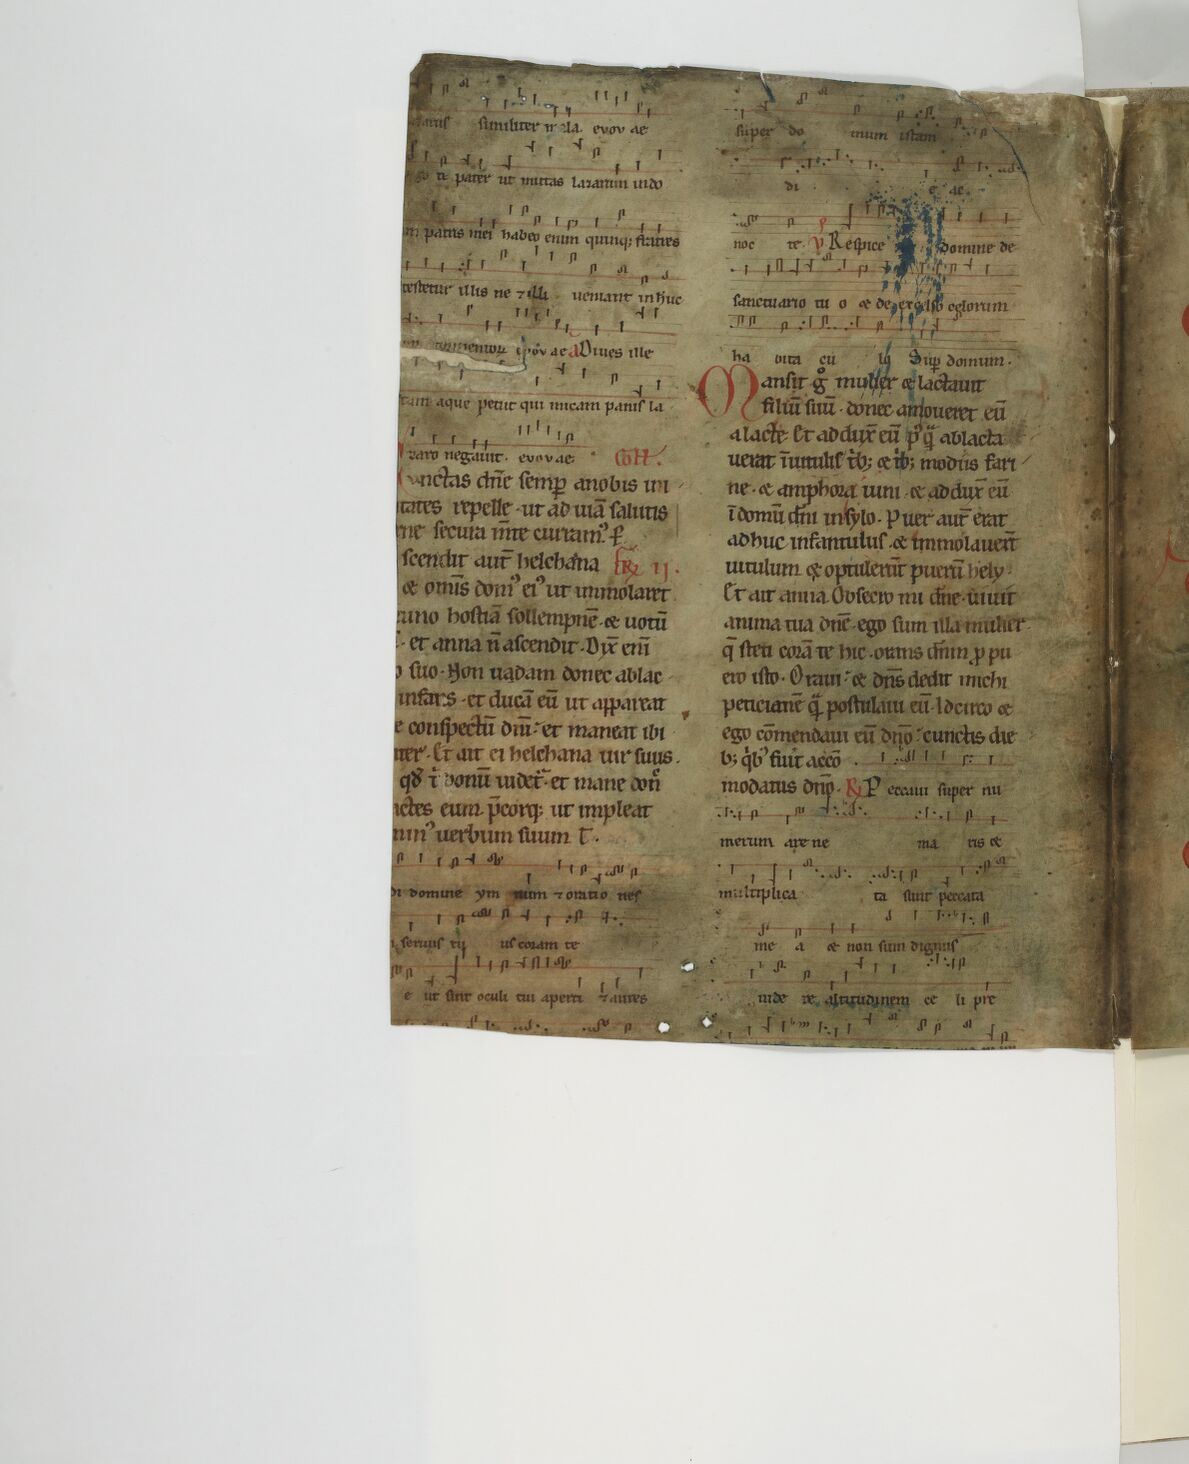 similiter mala. evovae
go te pater ut mittas lazarum in do
m patris mei habeo enim quinq; fratres
testetur illis ne ⁊ illi veniant in huc
evovae a Dives ille
tam aque petiit qui micam panis la
zaro negavit. evovae Coll.
Cunctas dñe semp̲ a nobis ini
tates repelle · ut ad viã salutis
ne secura m̃te curramꝰ. P̲
scendit aut̃ helchana Fr̲ ii.
⁊ om̃is domꝰ eiꝰ ut immolaret
no hostiã sollempnẽ · ⁊ votũ
· et anna ñ ascendit · Dix̃ eni
o suo · Non vadam donec ablac
infans · et ducã eũ ut appareat
e conspectũ dñi · et maneat ibi
iter · Et ait ei helchana vir suus ·
qđ t̃ bonũ videt̃ · et mane don̾
actes eum · p̃corq; ut impleat
minꝰ verbum suum t̃ ·
di domine ymnum ⁊ oratio nes
servus tuus coram te
e ut sint oculi tui aperti ⁊ aures
super domum istam
di e ac
noc te. V Respice domine de
sanctuario tuo ⁊ de excelso celorum
habitaculo Sup̲ domum ·
Mansit gͦ mulier ⁊ lactavit
filiũ suũ · donec amoveret eũ
a lacte · Et addux̃ eũ pꝰ q̃ ablacta
verat ĩ vitulis t̾b; ⁊ t̾b; modiis fari
ne · ⁊ amphora vini · ⁊ addux̃ eũ
ĩ domũ dñi in sylo · Puer aut̃ erat
adhuc infantulus · ⁊ immolaver̃t
vitulum ⁊ optuler̃t puerũ hely ·
Et ait anna. Obsecro mi dñe · vivit
anima tua dñe · ego sum illa mulier
q̃ steti corã te hic · orans dñm p̲ pu
ero isto · Oravi · ⁊ dñs dedit michi
peticionẽ q̃ postulavi eũ · Idcirco ⁊
ego cõmendavi eũ dño · cunctis die
b; q̾bꝰ fuit acco
modatus dño · R̲ Peccavi super nu
merum arene maris ⁊
multiplicata sunt peccata
mea ⁊ non sum dignus
videre altitudinem celi pre